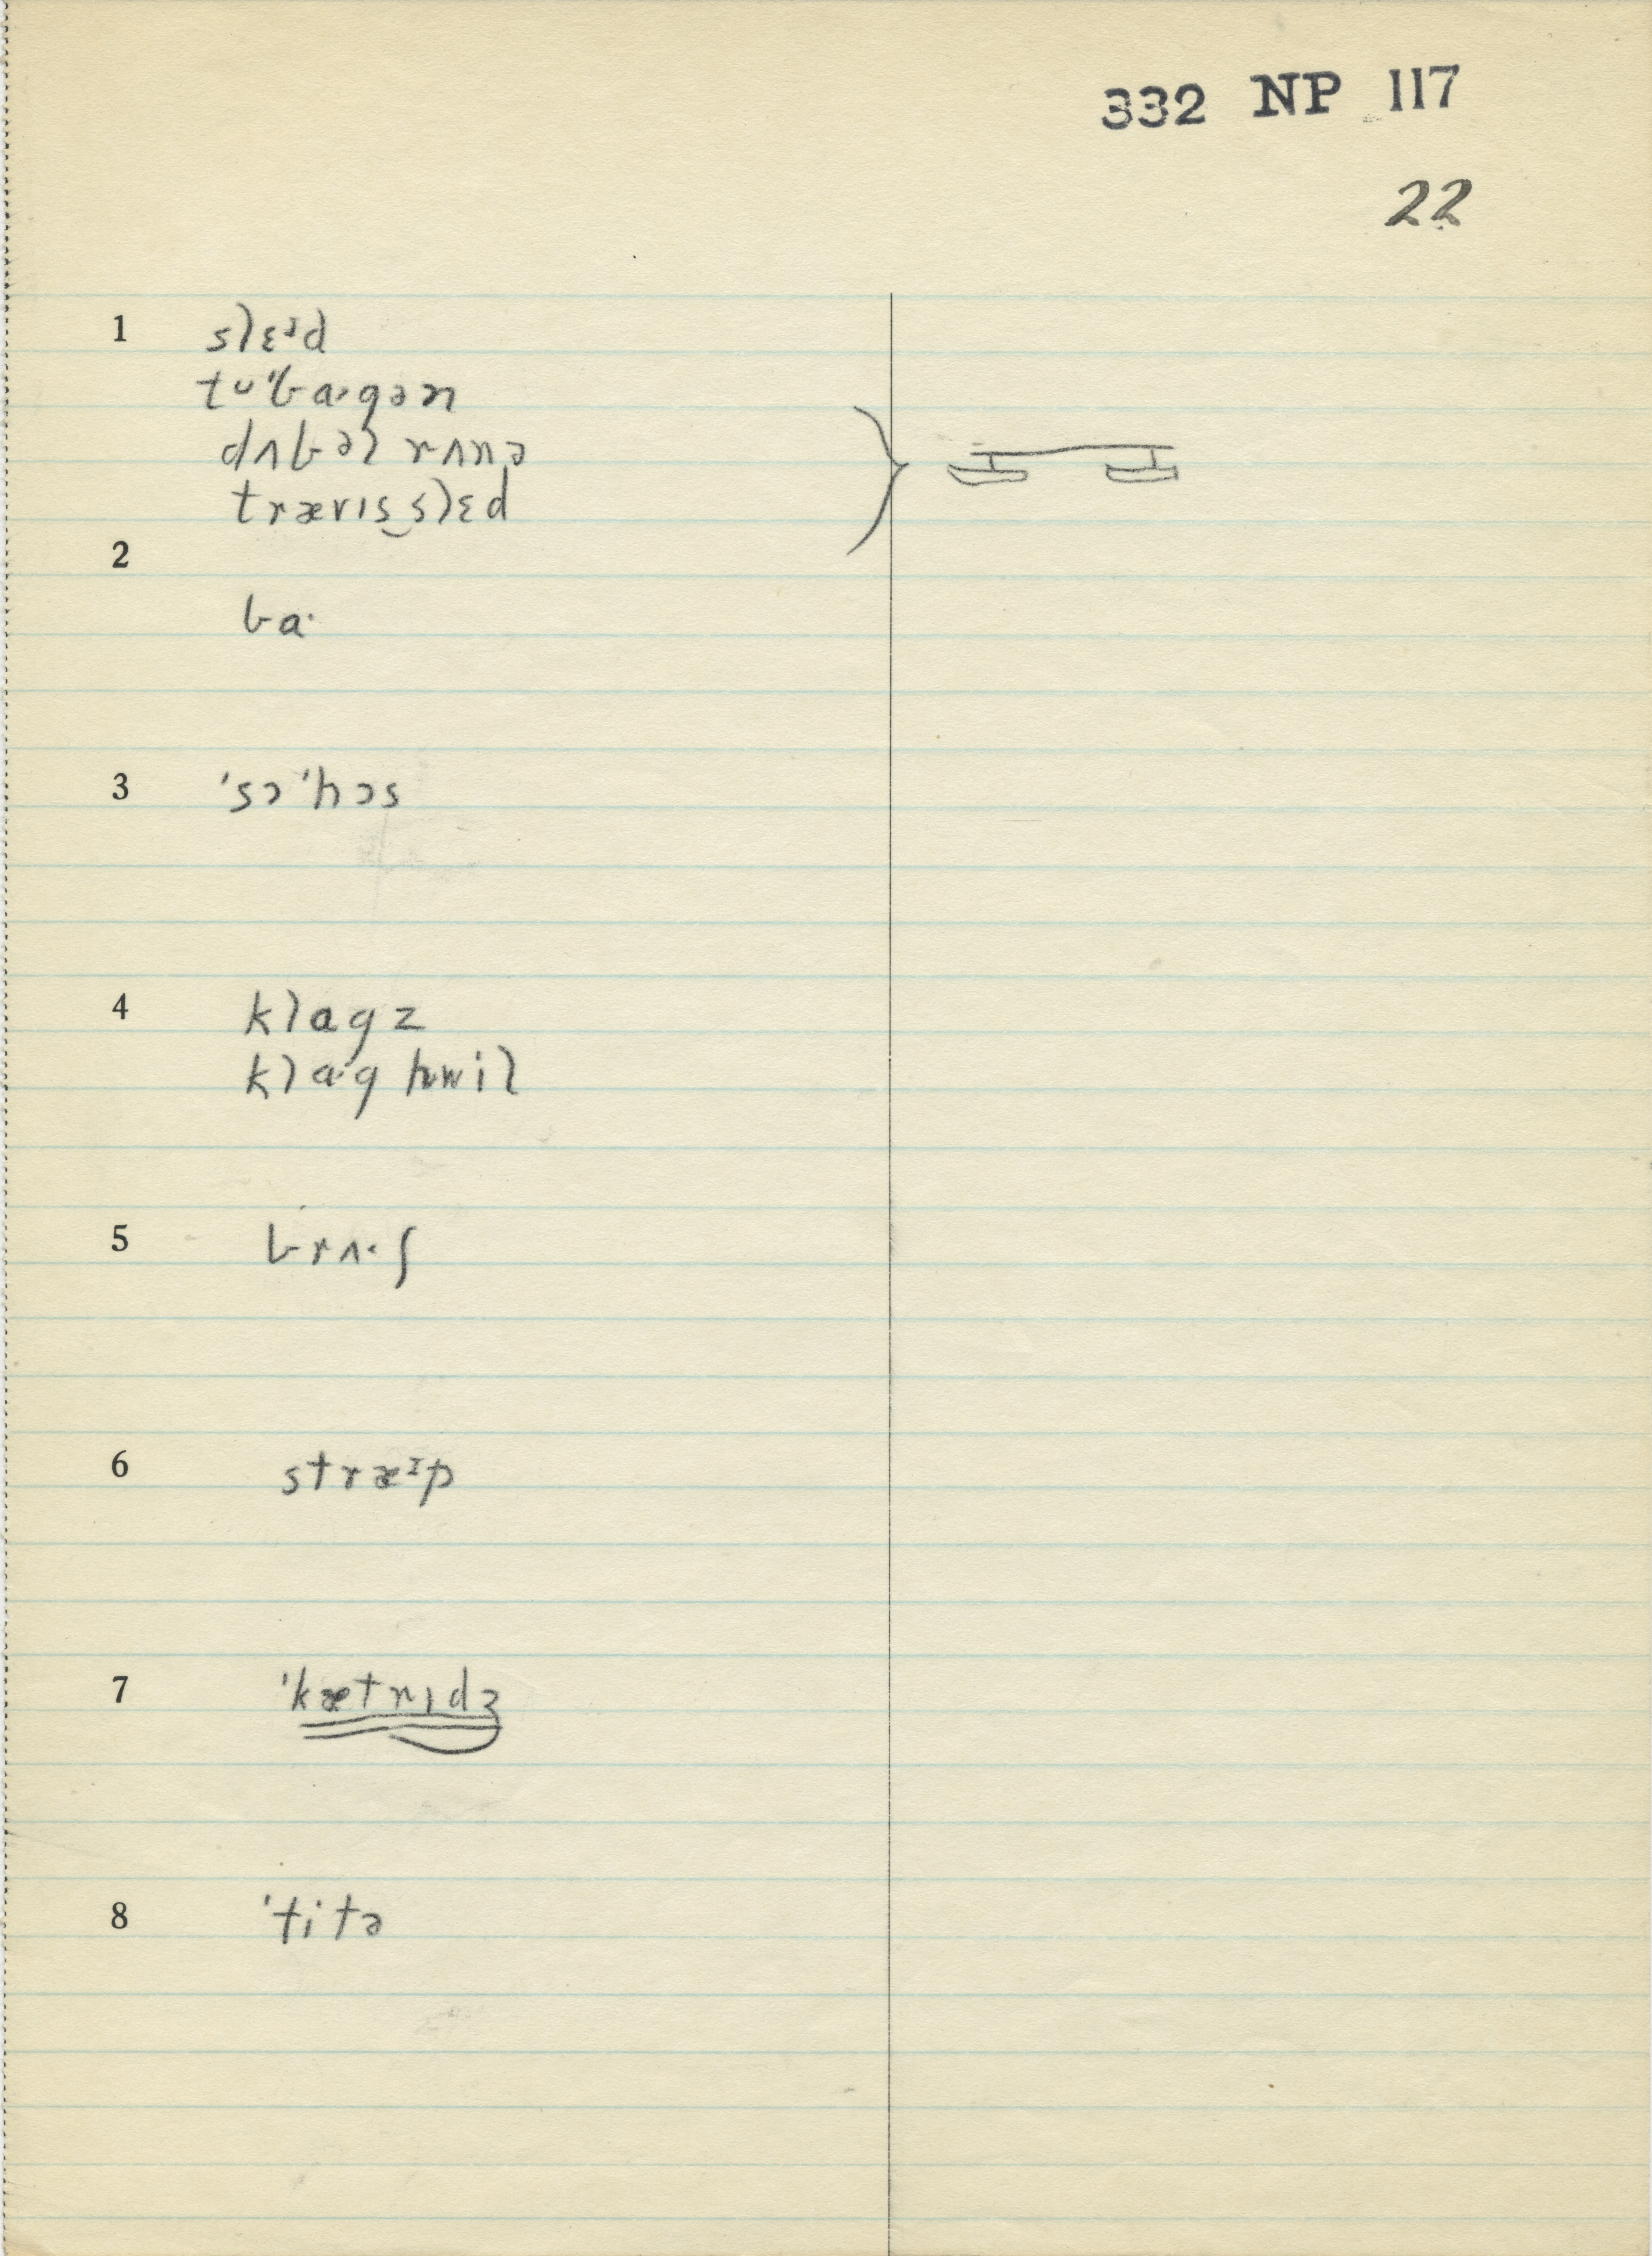 332 NP 117
22
1 slɛᵊd
tuˈbaˑgən
dʌbəl rʌnə
trævɪs‿slɛd
2
baˑ
3 ˈsɔˈhɔs
4 klagz
klaˑg hwil
5 brʌˑʃ
6 stræᶦp
7 ˈkætrɪdʒ
8 ˈtitə